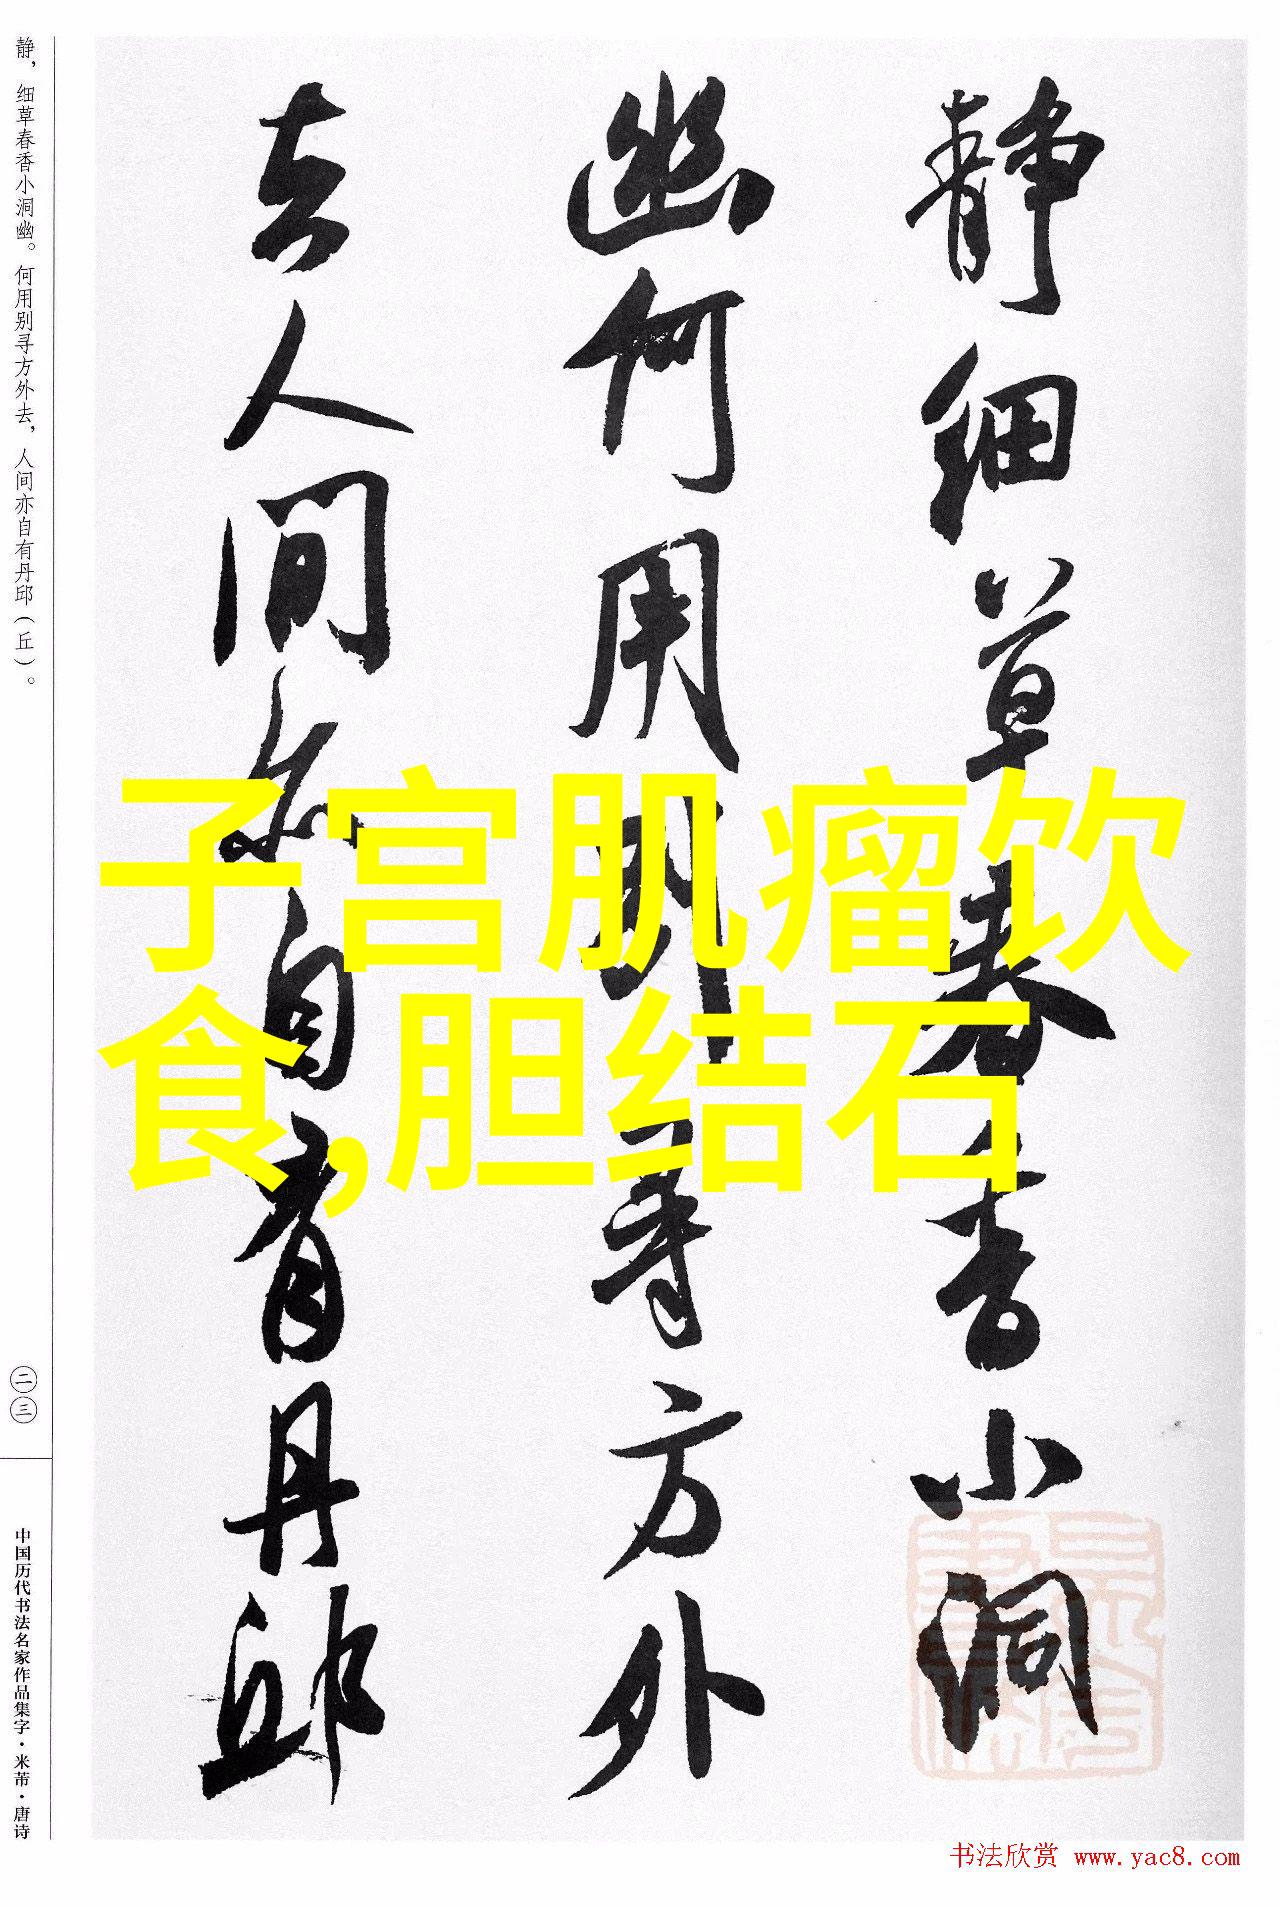 静细草春香小洞
幽何用别寻方外
去人间亦自有丹邱
子宫肌瘤饮
食,胆结石
静，细草春香小洞幽。何用别寻方外去，人间亦自有丹邱（丘）。
二三
中国历代书法名家作品集字·米芾·唐诗
书法欣赏 www.yac8.com